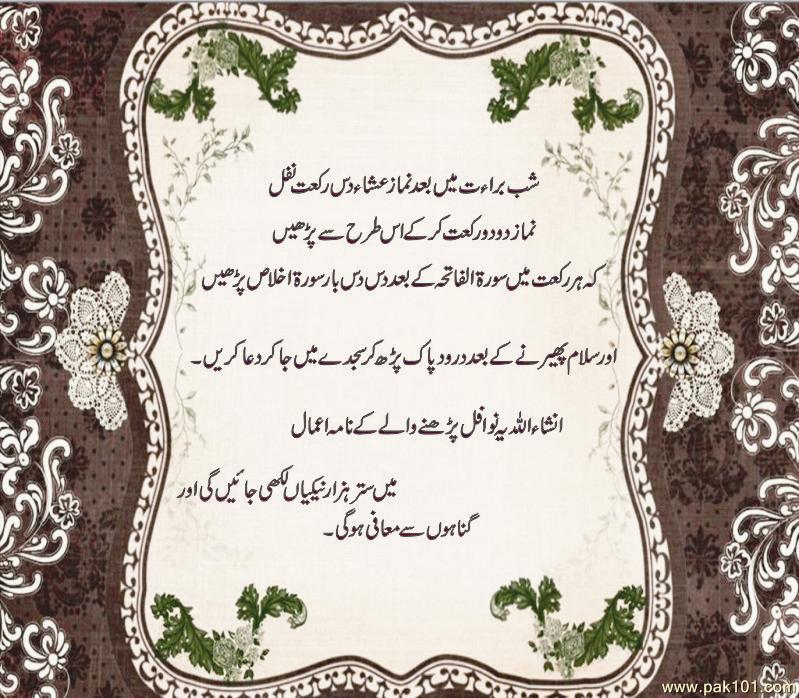 شب براءت میں بعد نماز عشاء دس رکعت نفل
نماز دو دو رکعت کر کے اس طرح سے پڑھیں
کہ ہر رکعت میں سورۃ الفاتحہ کے بعد دس دس بار سورۃ اخلاص پڑھیں
اور سلام پھیرنے کے بعد درود پاک پڑھ کر سجدے میں جا کر دعا کریں۔
انشاء اللہ یہ نوافل پڑھنے والے کے نامہ اعمال
میں ستر ہزار نیکیاں لکھی جائیں گی اور
گناہوں سے معافی ہو گی۔
www.pak101.com